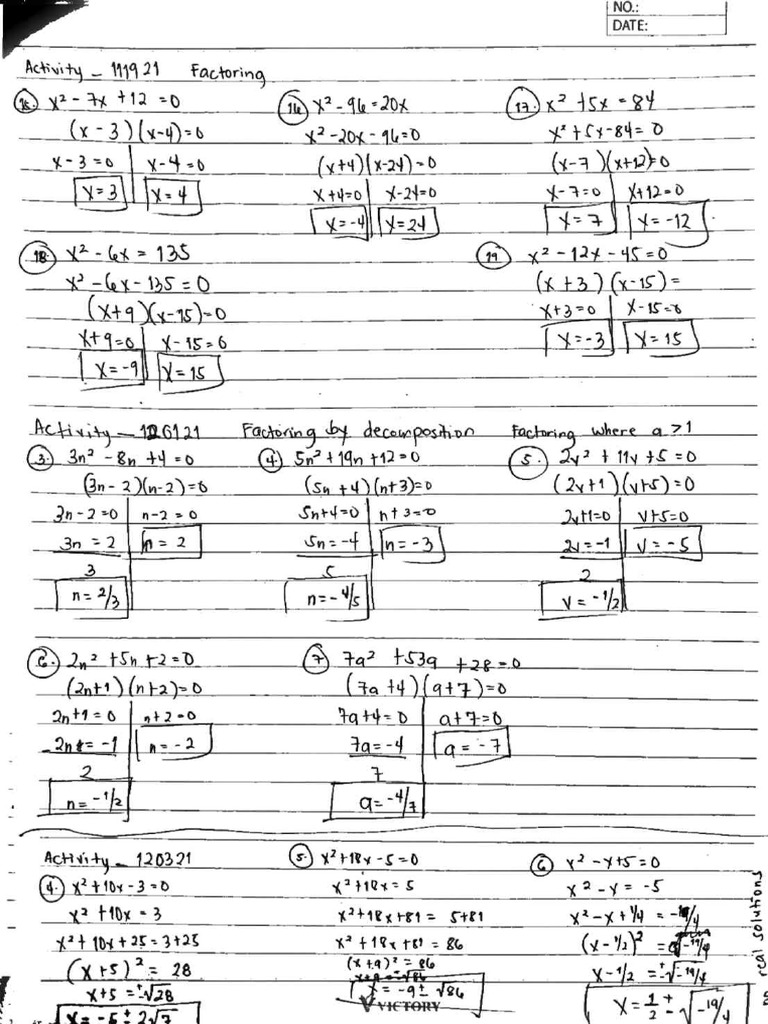 NO.:
DATE:
Activity - 111921 Factoring
15. x² - 7x + 12 = 0
(x - 3)(x - 4) = 0
x - 3 = 0 | x - 4 = 0
x = 3 | x = 4
16. x² - 96 = 20x
x² - 20x - 96 = 0
(x + 4)(x - 24) = 0
x + 4 = 0 | x - 24 = 0
x = -4 | x = 24
17. x² + 5x = 84
x² + 5x - 84 = 0
(x - 7)(x + 12) = 0
x - 7 = 0 | x + 12 = 0
x = 7 | x = -12
18. x² - 6x = 135
x² - 6x - 135 = 0
(x + 9)(x - 15) = 0
x + 9 = 0 | x - 15 = 0
x = -9 | x = 15
19. x² - 12x - 45 = 0
(x + 3)(x - 15) =
x + 3 = 0 | x - 15 = 0
x = -3 | x = 15
Activity - 120121 Factoring by decomposition Factoring where a > 1
3. 3n² - 8n + 4 = 0
(3n - 2)(n - 2) = 0
3n - 2 = 0 | n - 2 = 0
3n = 2 | n = 2
3
n = 2/3
4. 5n² + 19n + 12 = 0
(5n + 4)(n + 3) = 0
5n + 4 = 0 | n + 3 = 0
5n = -4 | n = -3
5
n = -4/5
5. 2v² + 11v + 5 = 0
(2v + 1)(v + 5) = 0
2v + 1 = 0 | v + 5 = 0
2v = -1 | v = -5
2
v = -1/2
6. 2n² + 5n + 2 = 0
(2n + 1)(n + 2) = 0
2n + 1 = 0 | n + 2 = 0
2n = -1 | n = -2
2
n = -1/2
7. 7a² + 53a + 28 = 0
(7a + 4)(a + 7) = 0
7a + 4 = 0 | a + 7 = 0
7a = -4 | a = -7
7
a = -4/7
Activity - 120321
4. x² + 10x - 3 = 0
x² + 10x = 3
x² + 10x + 25 = 3 + 25
(x + 5)² = 28
x + 5 = ±√28
x = -5 ± 2√7
5. x² + 18x - 5 = 0
x² + 18x = 5
x² + 18x + 81 = 5 + 81
x² + 18x + 81 = 86
(x + 9)² = 86
x + 9 = ±√86
x = -9 ± √86
VICTORY
6. x² - x + 5 = 0
x² - x = -5
x² - x + 1/4 = -19/4
(x - 1/2)² = √-19/4
x - 1/2 = ±√-19/4
x = 1/2 ± √-19/4
no real solutions